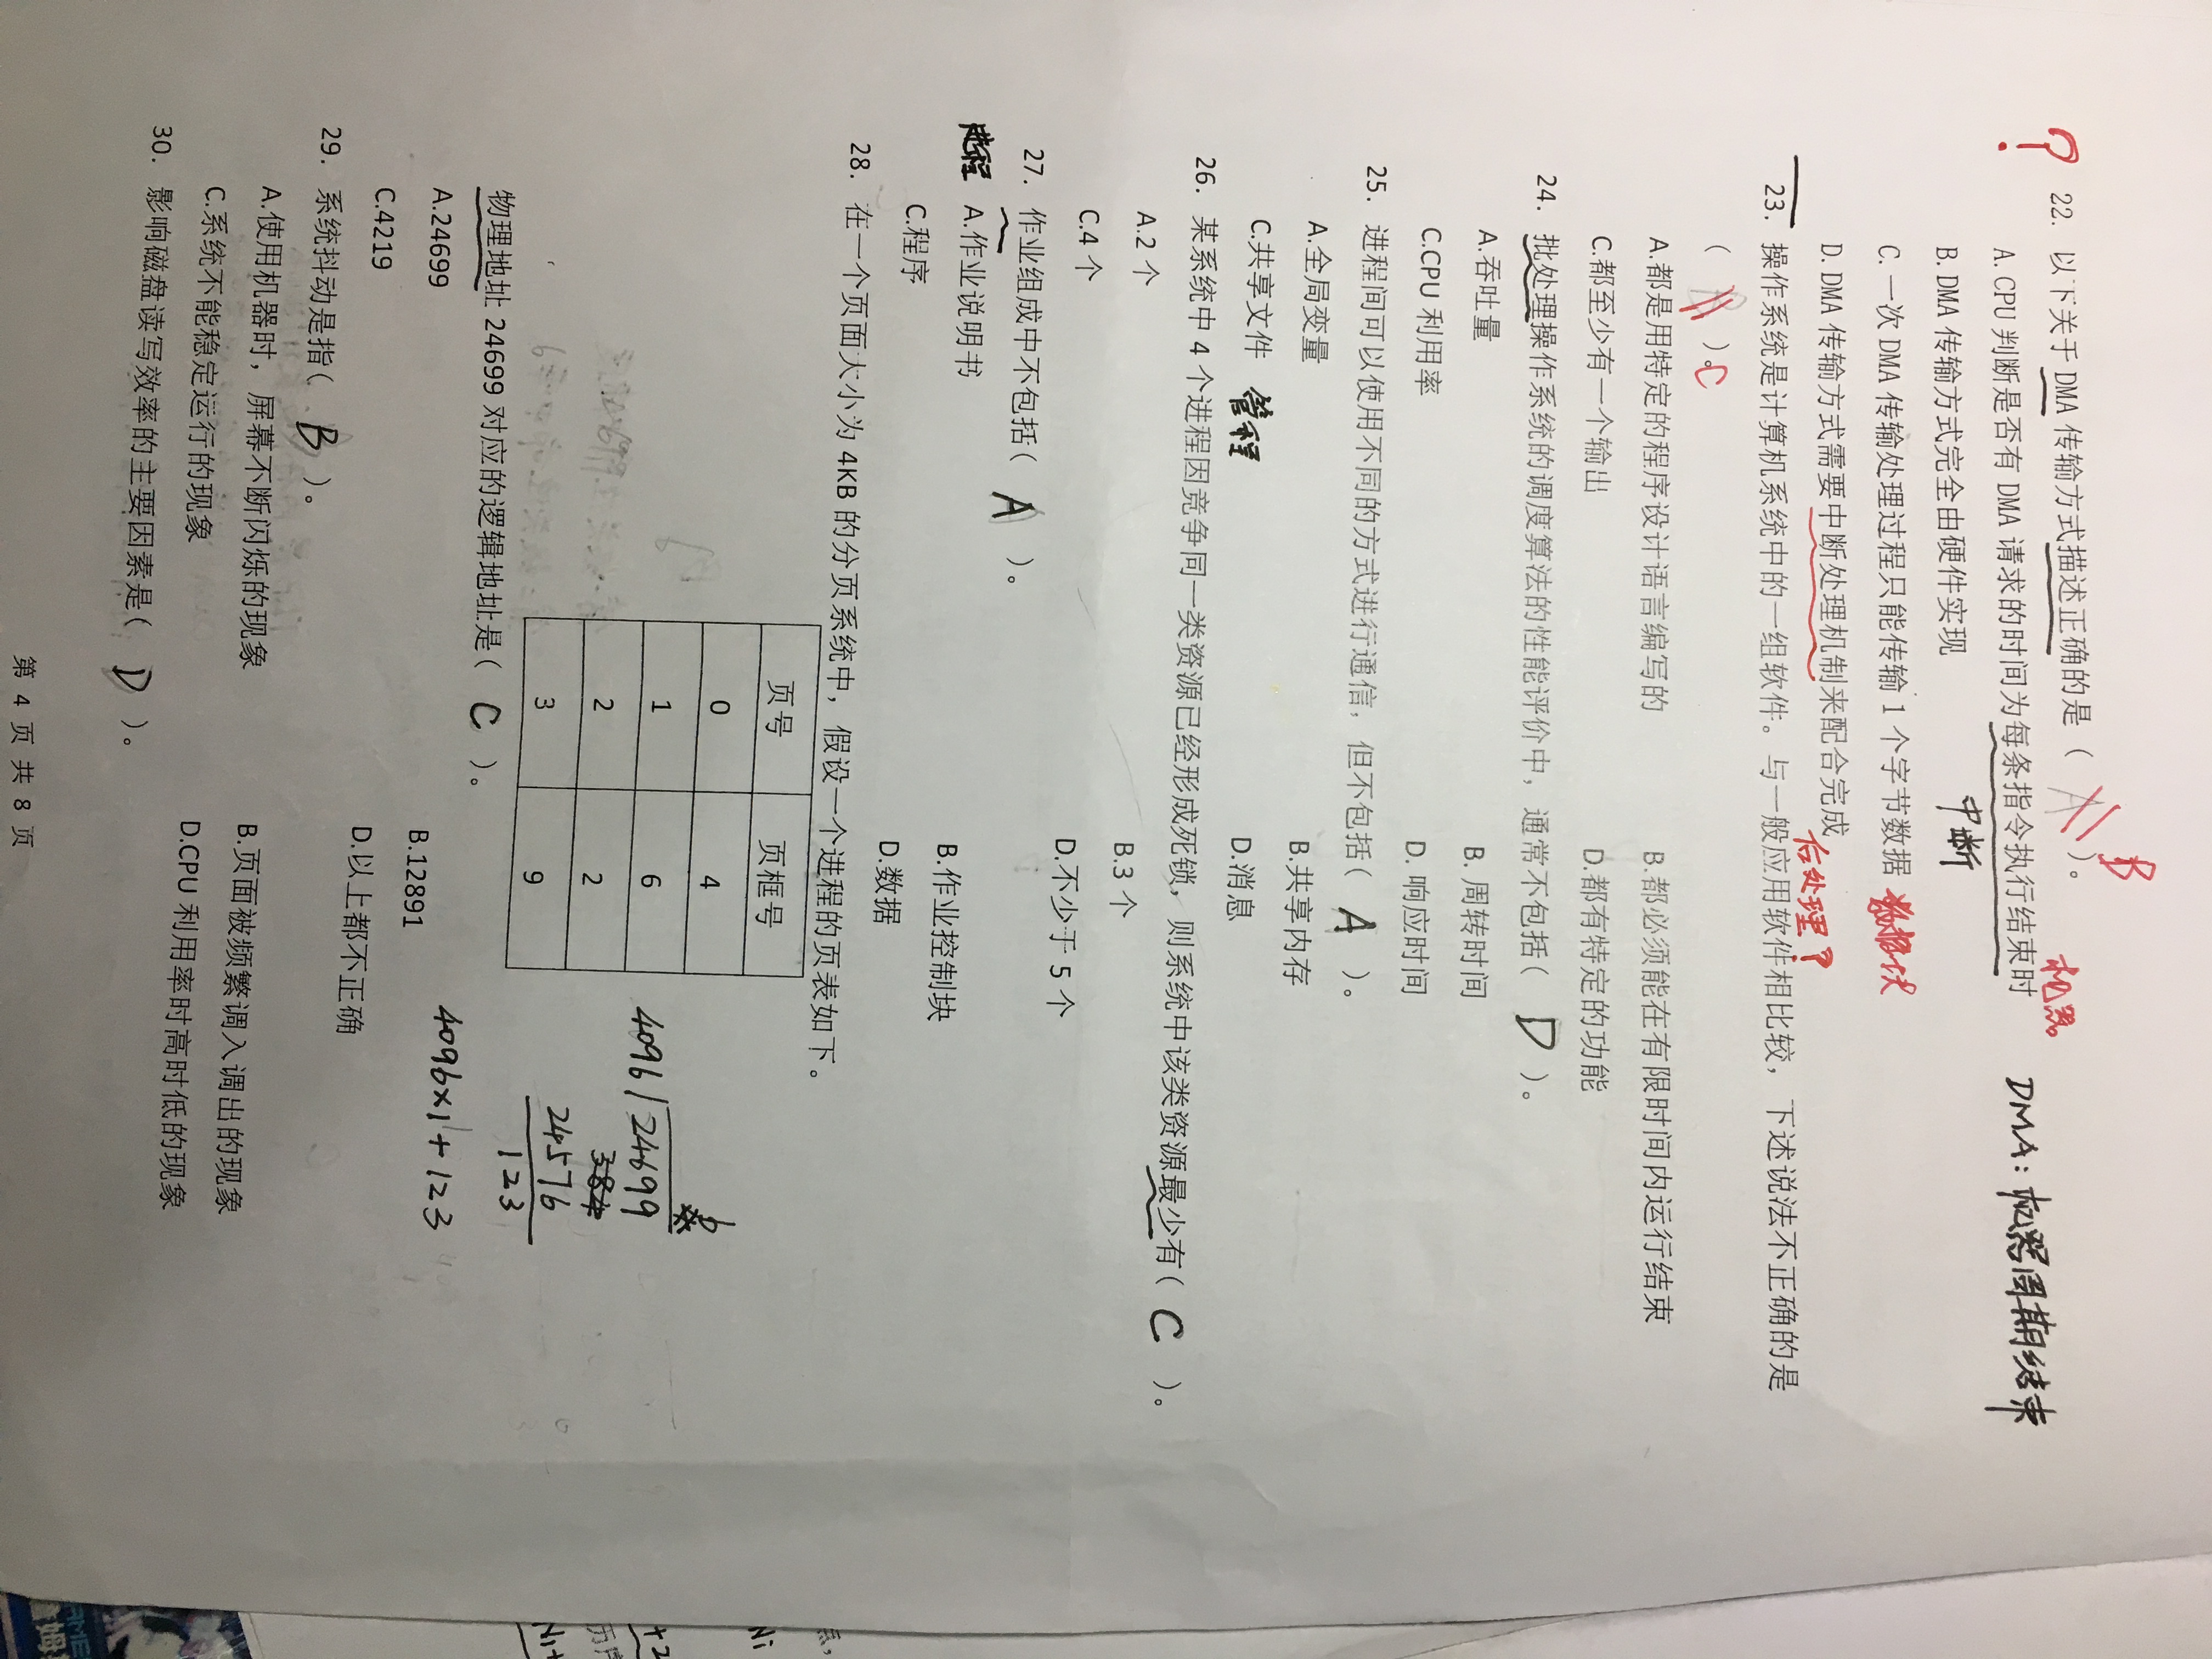 B
22. 以下关于 DMA 传输方式描述正确的是（ A ）。
机器
A. CPU 判断是否有 DMA 请求的时间为每条指令执行结束时
DMA: 机器周期结束
中断
B. DMA 传输方式完全由硬件实现
C. 一次 DMA 传输处理过程只能传输 1 个字节数据 数据块
D. DMA 传输方式需要中断处理机制来配合完成
后处理?
23. 操作系统是计算机系统中的一组软件。与一般应用软件相比较，下述说法不正确的是
（ B ）。C
A.都是用特定的程序设计语言编写的 B.都必须能在有限时间内运行结束
C.都至少有一个输出 D.都有特定的功能
24. 批处理操作系统的调度算法的性能评价中，通常不包括( D )。
A.吞吐量 B. 周转时间
C.CPU 利用率 D. 响应时间
25. 进程间可以使用不同的方式进行通信，但不包括( A )。
A.全局变量 B.共享内存
C.共享文件 管程 D.消息
26. 某系统中 4 个进程因竞争同一类资源已经形成死锁，则系统中该类资源最少有( C )。
A.2 个 B.3 个
C.4 个 D.不少于 5 个
27. 作业组成中不包括( A )。
进程 A.作业说明书 B.作业控制块
C.程序 D.数据
28. 在一个页面大小为 4KB 的分页系统中，假设一个进程的页表如下。
页号 页框号
0 4
1 6
2 2
3 9
6
4096 24699
384
24576
123
物理地址 24699 对应的逻辑地址是( C )。
4096×1+123
A.24699 B.12891
C.4219 D.以上都不正确
29. 系统抖动是指( B )。
A.使用机器时，屏幕不断闪烁的现象 B.页面被频繁调入调出的现象
C.系统不能稳定运行的现象 D.CPU 利用率时高时低的现象
30. 影响磁盘读写效率的主要因素是( D )。
第 4 页 共 8 页